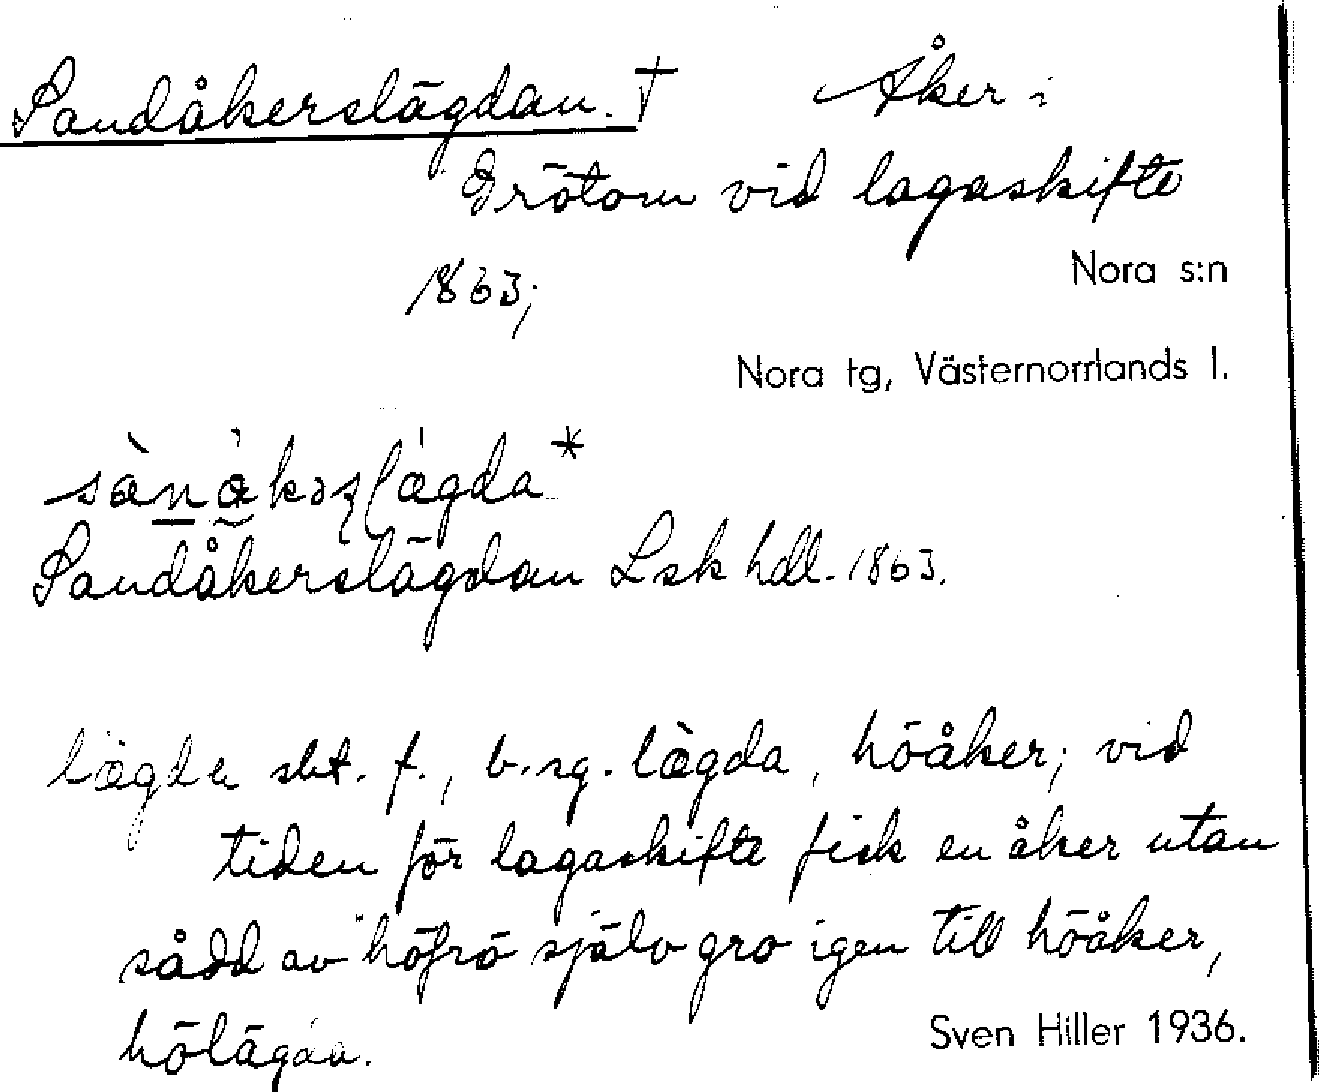 Sandåkerslägdan. † Åker i
Grötom vid lagaskifte
1863; Nora s:n
Nora tg, Västernorrlands l.
Sandåkerslägdan Lsk hdl. 1863.
lägda sbt. f., b.sg. lægda, höåker; vid
tiden för lagaskifte fick en åker utan
sådd av höfrö själv gro igen till höåker,
hölägda. Sven Hiller 1936.